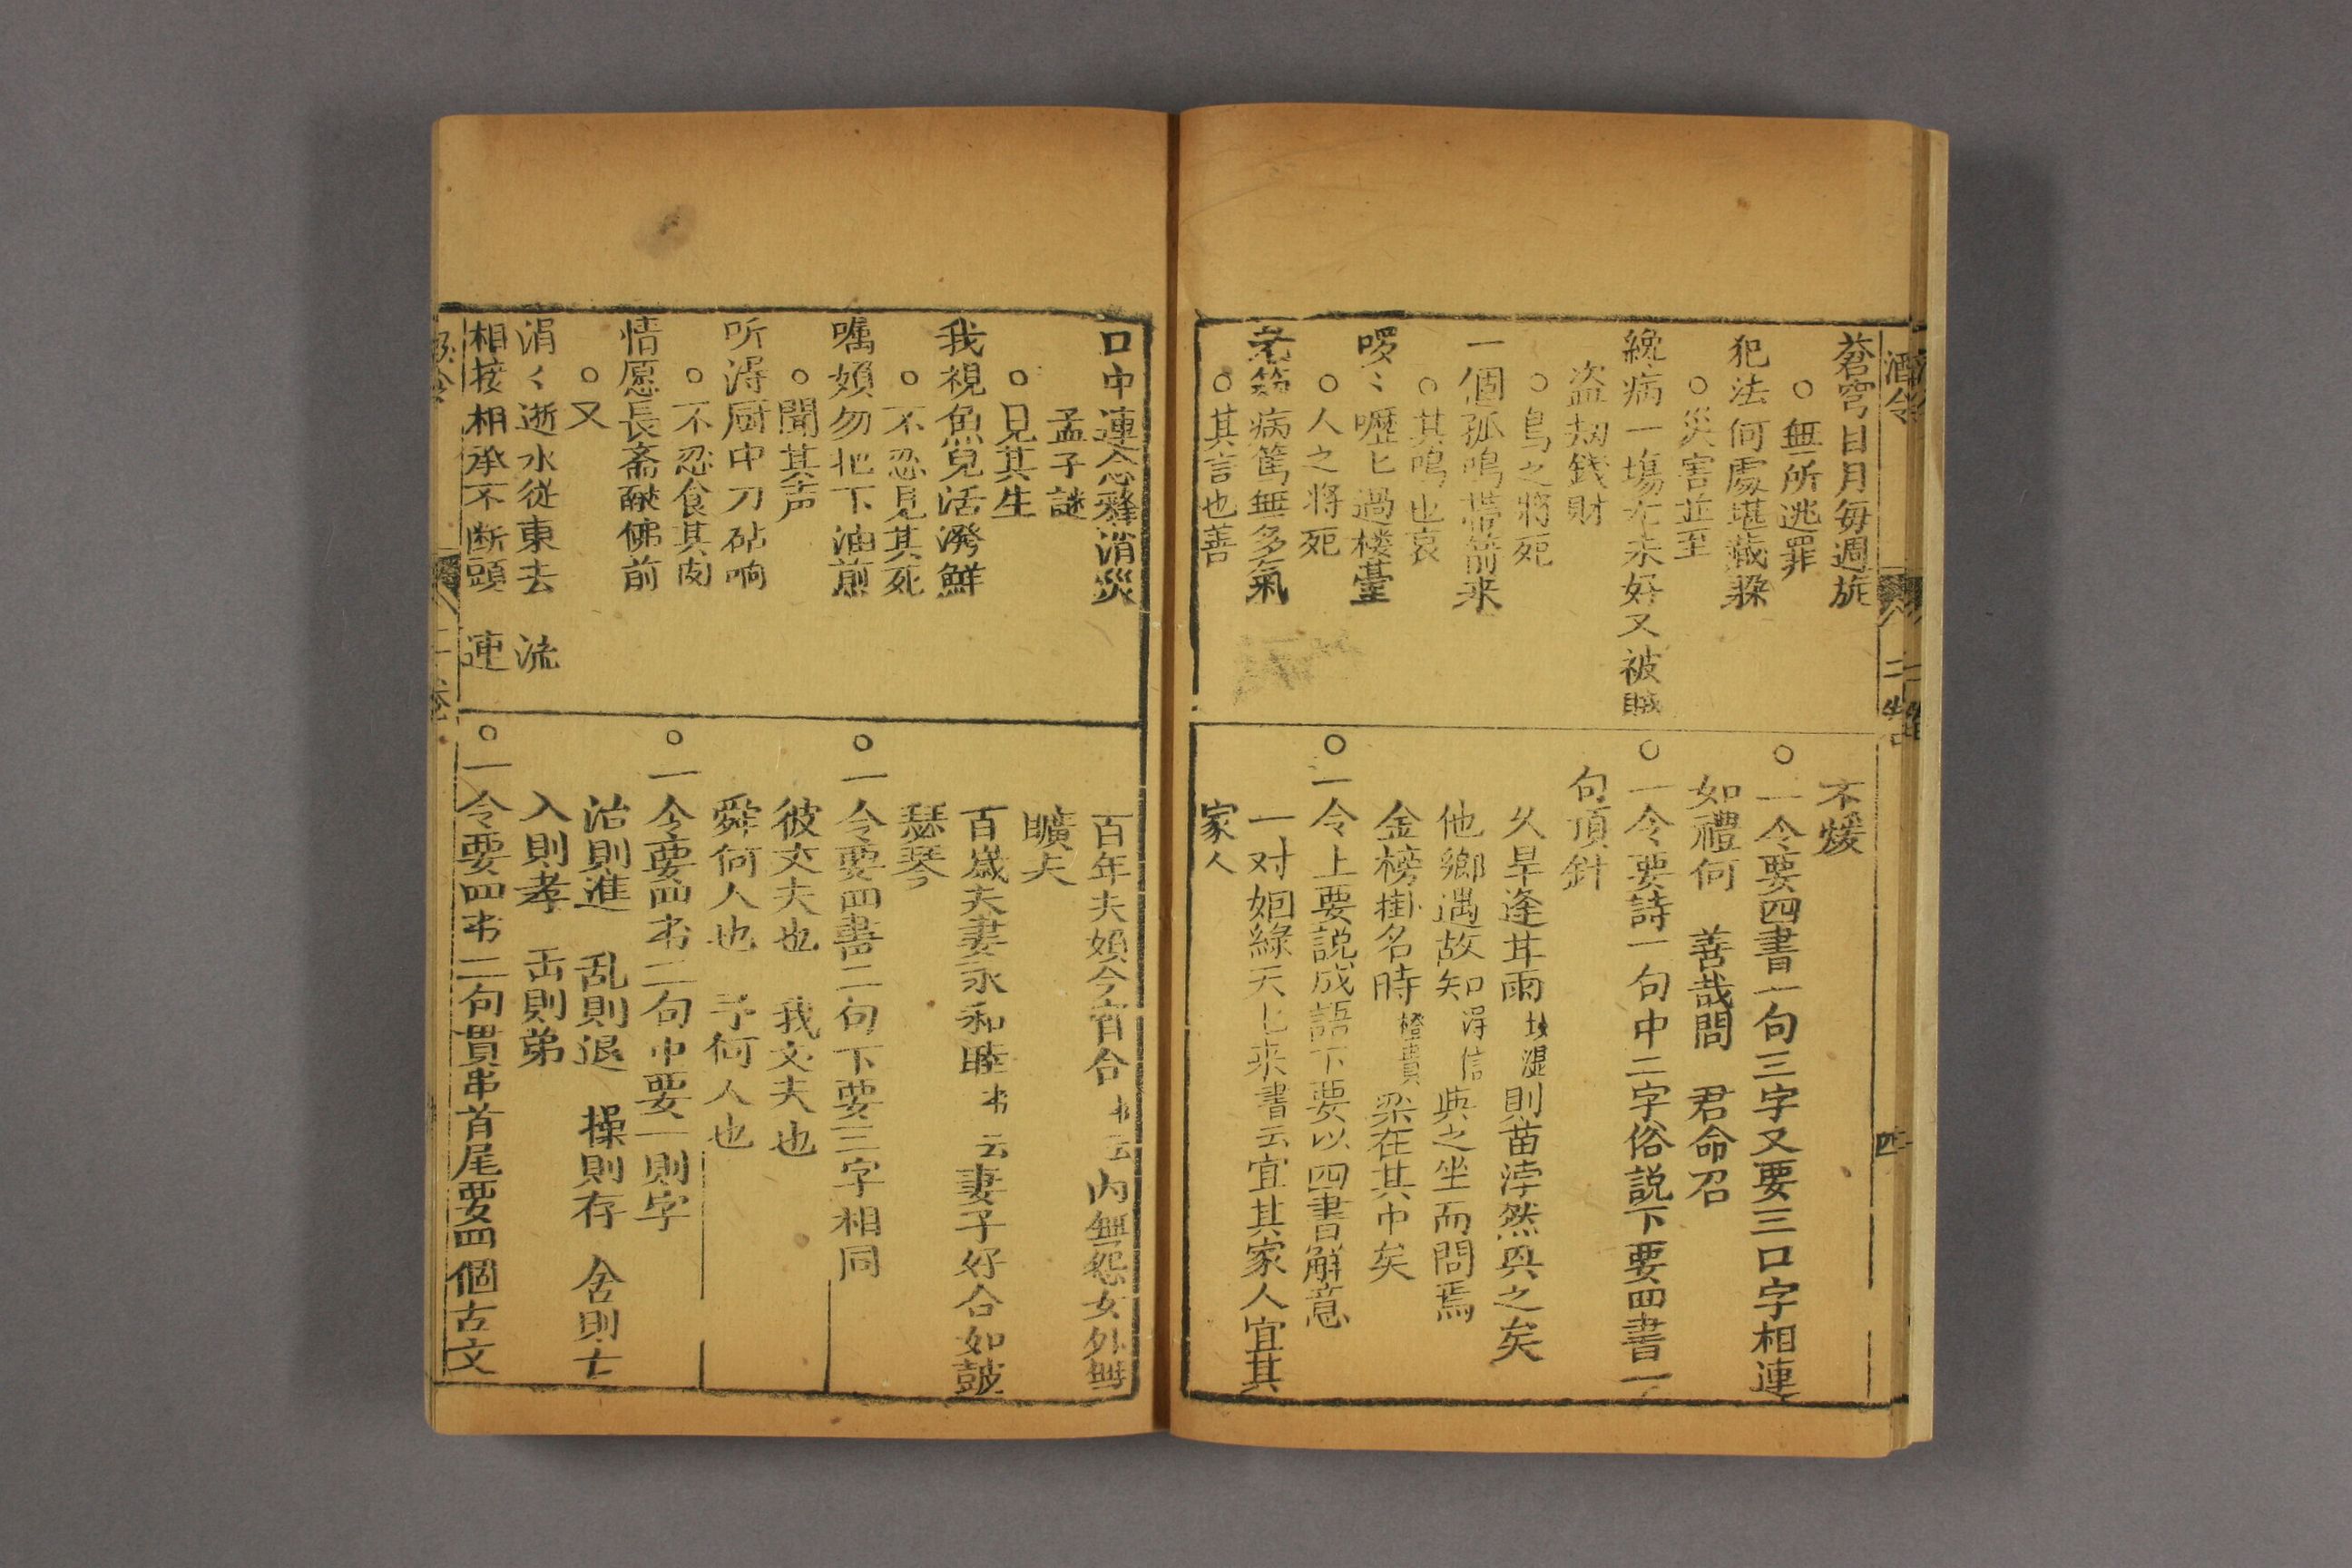 酒令
二
四
蒼穹日月每週旋
○無所逃罪
犯法何處堪藏躲
○災害並至
纔病一塲尤未好又被賊
盗刼錢財
○鳥之將死
一個孤鳴帶箭来
○其鳴也哀
啰〻嚦〻過楼臺
○人之將死
老翁病篤無多氣
○其言也善
不煖
○一令要四書一句三字又要三口字相連
如禮何 善哉問 君命召
○一令要詩一句中二字俗説下要四書一
句頂針
久旱逢甘雨 塊濕 則苗浡然興之矣
他鄉遇故知 得信 與之坐而問焉
金榜掛名時 橙貴 梁在其中矣
○一令上要説成語下要以四書觧意
一对姻緣天上来書云宜其家人宜其
家人
口中連念釋消災
孟子謎
○見其生
我視魚兒活潑鮮
○不忍見其死
囑媍勿把下油煎
○聞其声
听淂厨中刀砧响
○不忍食其肉
情愿長斋佛前
○又
涓〻逝水従東去 流
相接相承不断頭 連
百年夫媍今宵合 书云 内無怨女外無
曠夫
百歲夫妻永和睦 书云 妻子好合如鼓
瑟琴
○一令要四書二句下要三字相同
彼丈夫也 我丈夫也
舜何人也 予何人也
○一令要四书二句中要一則字
治則進 乱則退 操則存 舍則亡
入則孝 出則弟
○一令要四书二句貫串首尾要四個古文